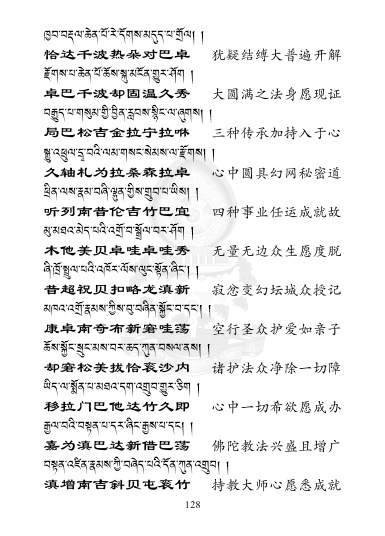 ཁྱབ་བརྡལ་ཆེན་པོ་རེ་དོགས་མདུད་པ་གྲོལ། །
恰达千波热朵对巴卓 犹疑结缚大普遍开解
རྫོགས་པ་ཆེན་པོ་ཆོས་སྐུ་མངོན་གྱུར་ཤོག །
卓巴千波却固温久秀 大圆满之法身愿现证
བརྒྱུད་པ་གསུམ་གྱི་བྱིན་རླབས་སྙིང་ལ་ཞུགས། །
局巴松吉金拉宁拉咻 三种传承加持入于心
སྒྱུ་འཕྲུལ་དྲྭ་བའི་ལམ་གསང་སེམས་ལ་རྫོགས། །
久轴札为拉桑森拉卓 心中圆具幻网秘密道
ཕྲིན་ལས་རྣམ་བཞི་ལྷུན་གྱིས་གྲུབ་པ་ཡིས། །
听列南昔伦吉竹巴宜 四种事业任运成就故
མུ་མཐའ་མེད་པའི་འགྲོ་བ་སྒྲོལ་བར་ཤོག །
木他美贝卓哇卓哇秀 无量无边众生愿度脱
ཞི་ཁྲོ་སྤྲུལ་པའི་འཁོར་ལོས་ལུང་སྟོན་ཞིང་། །
昔超祝贝扣咯龙滇新 寂忿变幻坛城众授记
མཁའ་འགྲོ་རྣམས་ཀྱིས་བུ་བཞིན་སྐྱོང་བ་དང་། །
康卓南奇布新磨哇荡 空行圣众护爱如亲子
ཆོས་སྐྱོང་སྲུང་མས་བར་ཆད་ཀུན་བསལ་ནས། །
却磨松美拔恰衮沙内 诸护法众净除一切障
ཡིད་ལ་སྨོན་པ་མཐའ་དག་འགྲུབ་གྱུར་ཅིག །
移拉门巴他达竹久即 心中一切希欲愿成办
རྒྱལ་བའི་བསྟན་པ་དར་ཞིང་རྒྱས་པ་དང་། །
嘉为滇巴达新借巴荡 佛陀教法兴盛且增广
བསྟན་འཛིན་རྣམས་ཀྱི་བཞེད་པའི་དོན་ཀུན་འགྲུབ། །
滇增南吉斜贝屯衮竹 持教大师心愿悉成就
128